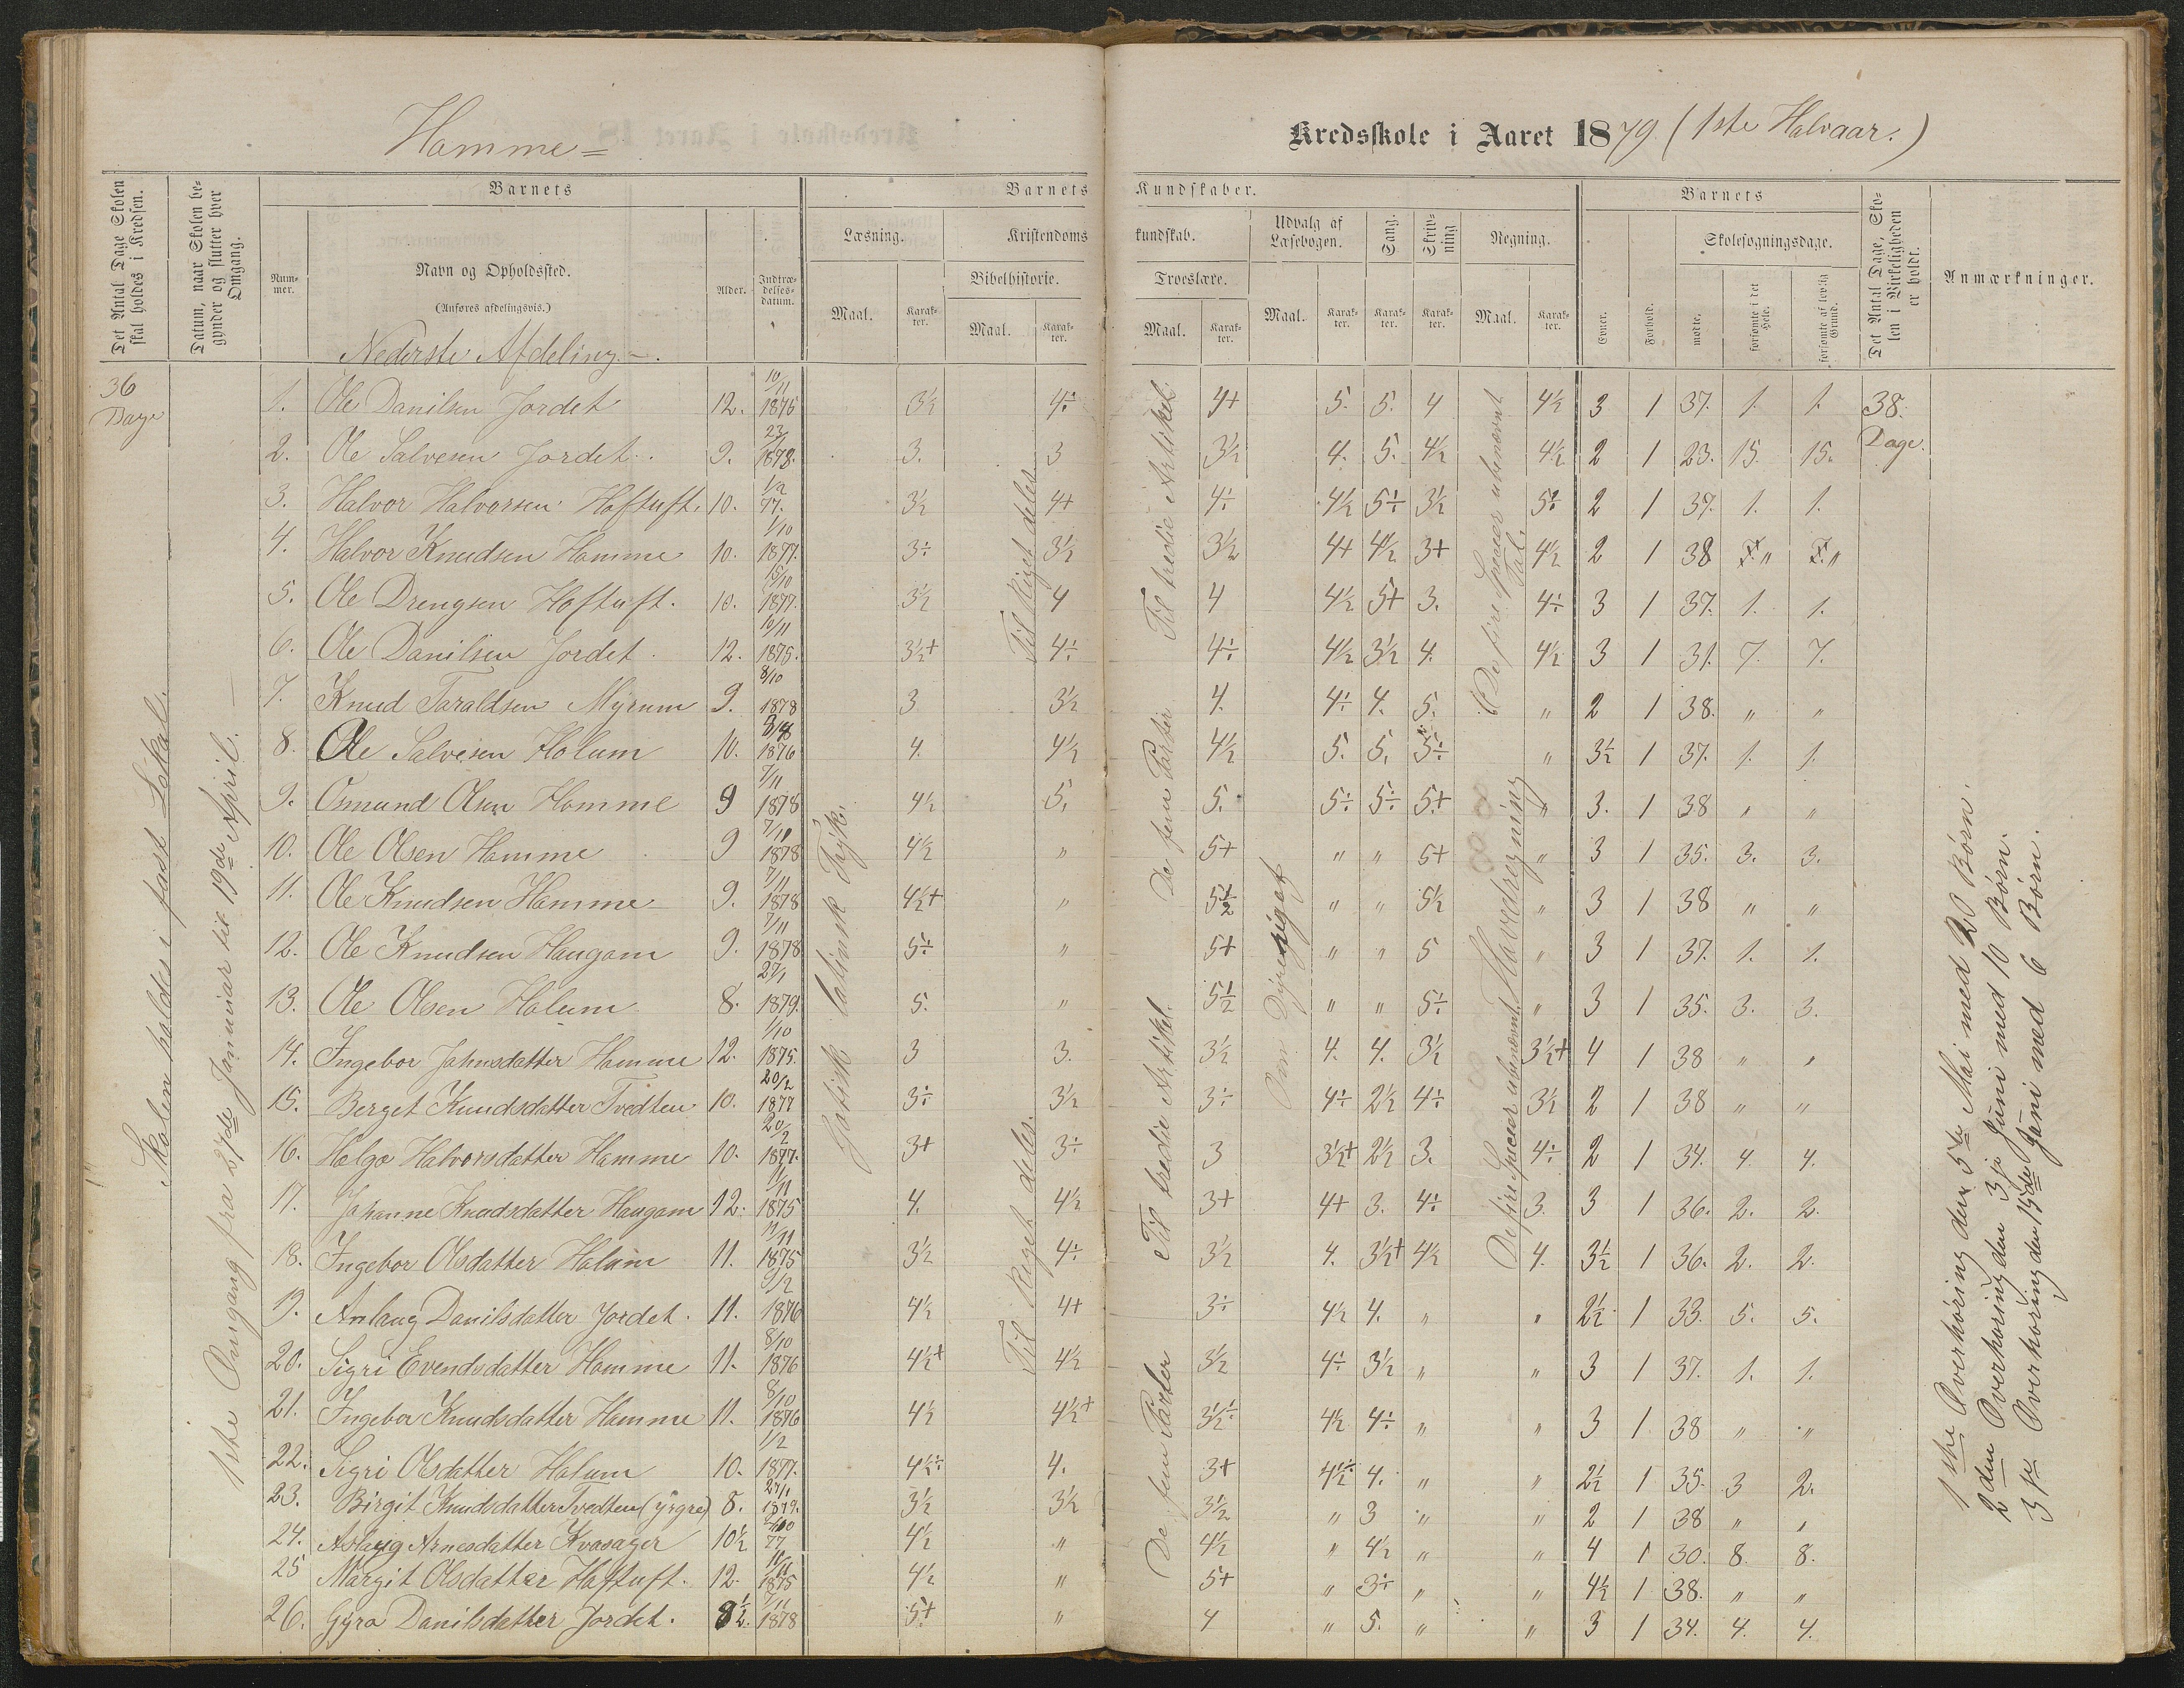 Homme=
Kredsskole i Aaret 1879. (1ste Halvaar.)
Det Antal Dage Skolen skal holdes i Kredsen.
Datum, naar Skolen begynder og slutter hver Omgang.
Barnets
Nummer.
Navn og Opholdssted.
(Anføres afdelingsvis.)
Alder.
Indtrædelsesdatum.
Barnets Kundskaber.
Læsning.
Maal. Karakter.
Kristendomskundskab.
Bibelhistorie.
Maal. Karakter.
Troeslære.
Maal. Karakter.
Udvalg af Læsebogen.
Maal. Karakter.
Sang.
Karakter.
Skrivning
Karakter.
Regning.
Maal. Karakter.
Barnets
Evner.
Forhold.
Skolesøgningsdage.
mødte.
forsømte i det Hele.
forsømte af lovlig Grund.
Det Antal Dage, Skolen i Virkeligheden er holdt.
Anmærkninger.
Nederste Afdeling.
36 Dage
Skolen holdes i fast Lokal.
1ste Omgang fra 27de Januar til 19de April.
1. Ole Danilsen Jordet 12. 10/11 1875 3½ 4÷ 4+ 5. 5. 4 4½ 3 1 37. 1. 1. 38. Dage.
2. Ole Salvesen Jordet. 9. 1878. 3. 3 3½ 4. 5. 4½ 4½ 2 1 23. 15. 15.
3. Halvor Halvorsen Hoftuft. 10. 1/2 77. 3½ 4+ 4÷ 4½ 5÷ 3½ 5÷ 2 1 37. 1. 1.
4. Halvor Knudsen Homme 10. 1/10 1877. 3÷ 3½ 3½ 4+ 4½ 3+ 4½ 2 1 38 " "
5. Ole Drengsen Hoftuft. 10. 15/10 1877. 3½ 4 4 4½ 5+ 3. 4÷ 3 1 37. 1. 1.
6. Ole Danilsen Jordet 12. 10/11 1875. 3½+ 4÷ 4÷ 4½ 3½ 4. 4½ 3 1 31. 7. 7.
7. Knud Taraldsen Myrum 9. 8/10 1878 3 3½ 4. 4÷ 4. 5. " 2 1 38. " "
8. Ole Salvesen Holum 10. 1876 4. 4½ 4½ 5. 5. 5÷ " 3½ 1 37. 1. 1.
9. Osmund Olsen Homme 9 7/11 1878 4½ 5. 5. 5÷ 5÷ 5+ " 3. 1 38 " "
10. Ole Olsen Homme 9 1878 4½ " 5+ " " 5+ " 3 1 35. 3. 3.
11. Ole Knudsen Homme 9. 7/11 1878 4½+ " 5½ " " 5½ " 3 1 38 " "
12. Ole Knudsen Haugom 9. 7/11 1878 5÷ " 5+ " " 5 " 3 1 37. 1. 1.
13. Ole Olsen Holum 8. 27/1 1879. 5. " 5½ " " 5÷ " 3 1 35. 3. 3.
14. Ingebor Jahnsdatter Homme 12. 1/10 1875. 3 3. 3½ 4. 4. 3½ 3½+ 4 1 38 " "
15. Berget Knudsdatter Tvedten 10. 20/2 1877 3÷ 3½ 3÷ 4÷ 2½ 4÷ 3½ 2 1 38 " "
16. Helga Halvorsdatter Homme 10. 20/2 1877. 3+ 3÷ 3 3½+ 2½ 3. 4÷ 2 1 34. 4. 4.
17. Johanne Knudsdatter Haugom 12. 1875 4. 4½ 3+ 4+ 3. 4÷ 3. 3 1 36. 2. 2.
18. Ingebor Olsdatter Holum 11. 11/11 1875 3½ 4÷ 3½ 4. 3½+ 4½ 4. 3½ 1 36. 2. 2.
19. Anlaug Danilsdatter Jordet. 11. 9/2 1876 4½ 4+ 3÷ 4½ 4. " " 2½ 1 33. 5. 5.
20. Sigri Evendsdatter Homme 11. 8/10 1876 4½+ 4½ 3½ 4÷ 3½ " " 3 1 37. 1. 1.
21. Ingebor Knudsdatter Homme 11. 8/10 1876 4½ 4½+ 3½÷ 4½ 4÷ " " 3 1 38 " "
22. Sigri Olsdatter Holum 10. 1/2 1877. 4½÷ 4. 3+ 4½÷ 4. " " 2½ 1 35. 3 2.
23. Birgit Knudsdatter Tvedten (yrgre) 8. 27/1 1879. 3½ 3½ 3½ " 3 " " 2 1 38 " "
24. Aslaug Arnesdatter Kvasager 10½ 77 4½ " 4½ " 4½ " " 4 1 30. 8. 8.
25 Margit Olsdatter Hoftuft. 12. 10/11 1875 4½ " 5+ " 3÷ " " 4½ 1 38. " "
26. Gyro Danilsdatter Jordet. 8½. 7/11 1878 5+ " 4 " 5. " " 3 1 34. 4. 4.
Gotisk latinsk Tryk.
Til Riget deles
Til Riget deles.
Til tredie Artikel.
De fem Parter
Til tredie Artikel.
De fem Parter
Om Dyreriget
De fire Specier ubenævnt Tal.
Hovedregning
De fire Specier ubenævnt
1ste Overhøring den 5te Mai med 20 Børn.
2den Overhøring den 3je Juni med 10 Børn.
3je Overhøring den 15de Juni med 6 Børn.